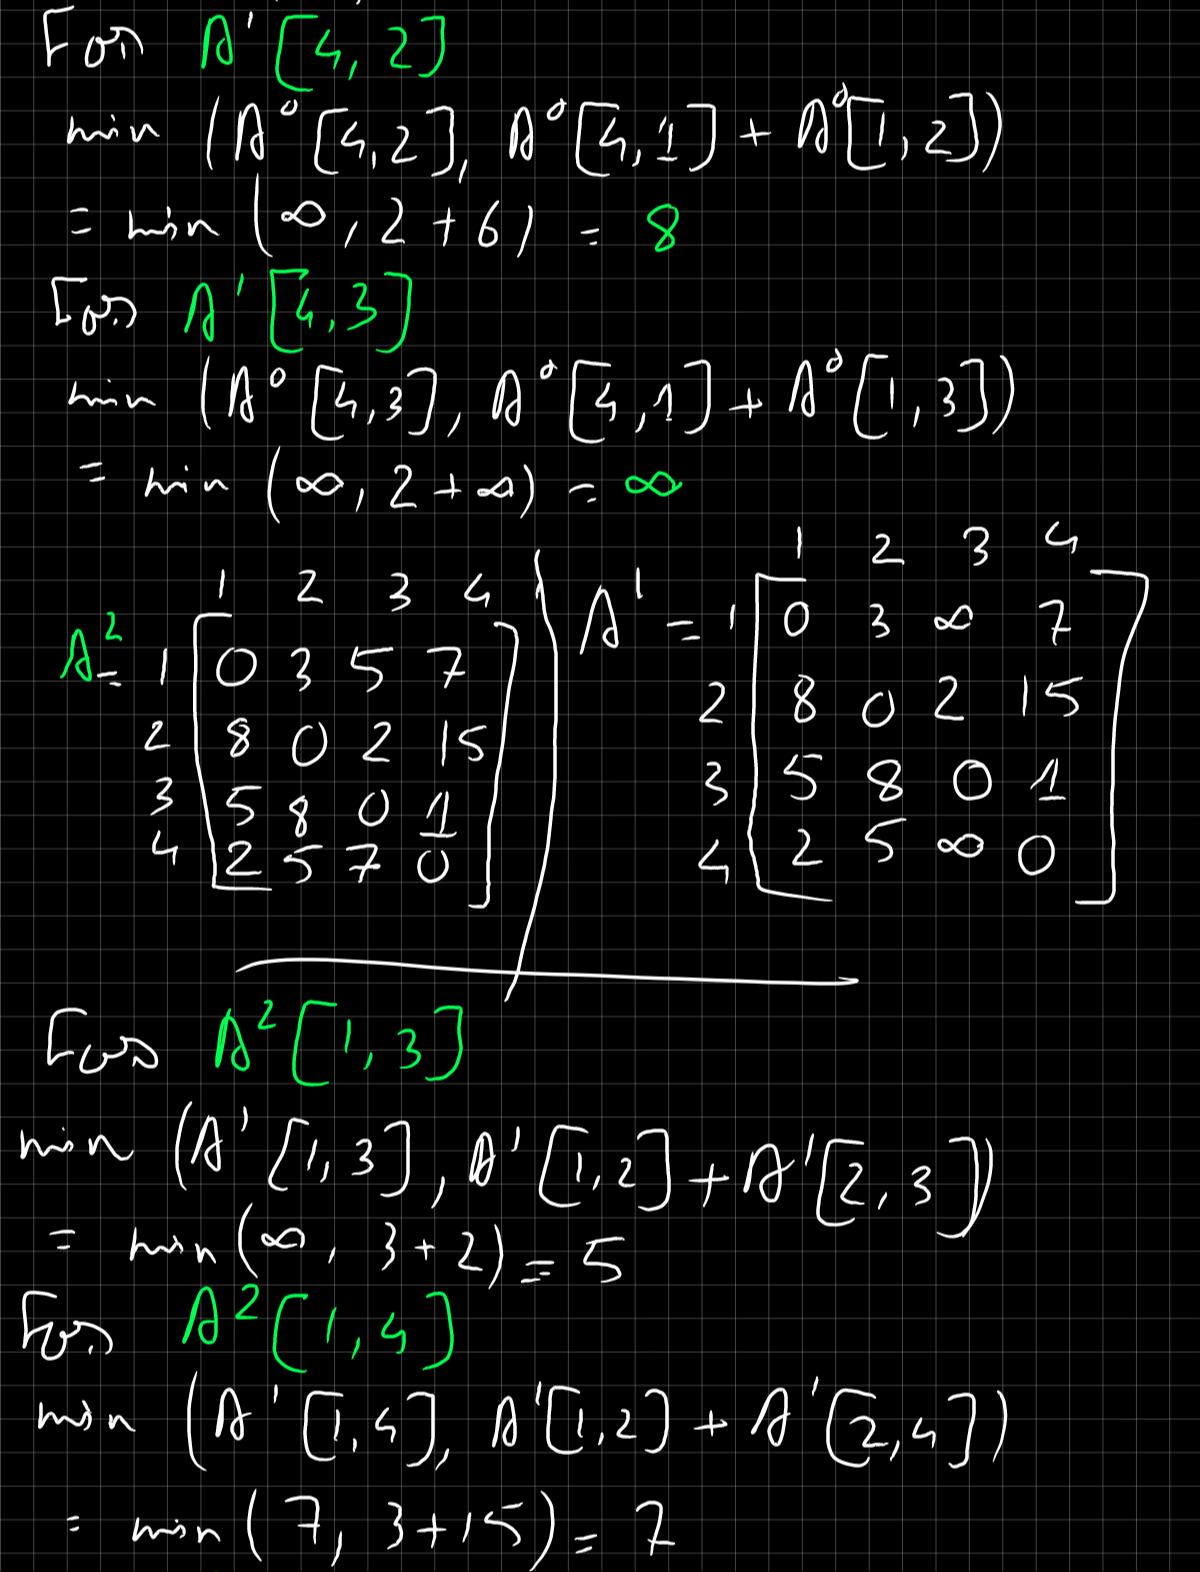 For A¹[4,2]
min (A⁰[4,2], A⁰[4,1] + A⁰[1,2])
= min (∞, 2 + 6) = 8
For A¹[4,3]
min (A⁰[4,3], A⁰[4,1] + A⁰[1,3])
= min (∞, 2 + ∞) = ∞
1 2 3 4
A² = 1 [0 3 5 7
2 8 0 2 15
3 5 8 0 1
4 2 5 7 0]
1 2 3 4
A¹ = 1 [0 3 ∞ 7
2 8 0 2 15
3 5 8 0 1
4 2 5 ∞ 0]
For A²[1,3]
min (A¹[1,3], A¹[1,2] + A¹[2,3])
= min (∞, 3 + 2) = 5
For A²[1,4]
min (A¹[1,4], A¹[1,2] + A¹[2,4])
= min (7, 3+15) = 7